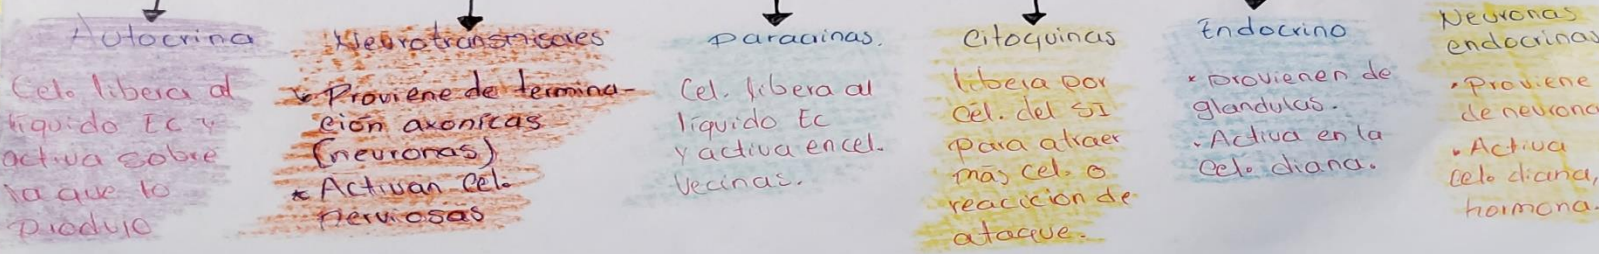 Autocrina
Cel. libera al
líquido EC y
activa sobre
la que lo
produjo
Neurotransmisores
* Proviene de termina-
ción axonicas
(neuronas)
* Activan Cel.
nerviosas
Paracrinas.
Cel. libera al
líquido Ec
y activa en cel.
Vecinas.
Citoquinas
libera por
cél. del SI
para atraer
más cel. o
reacición de
ataque.
Endocrino
* provienen de
glandulas.
. Activa en la
Celo diana.
Neuronas
endocrinas
. Proviene
de neurona
. Activa
celo diana,
hormona.